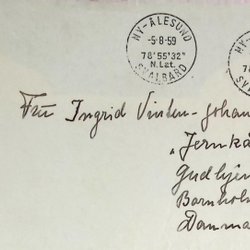 NY-ÅLESUND
-5-8-59
78°55'32"
N.Lat.
SVALBARD
NY
78
SVA
Fru Ingrid Vinten-Johan
"Jernkå
Gudhjem
Bornhol
Danma